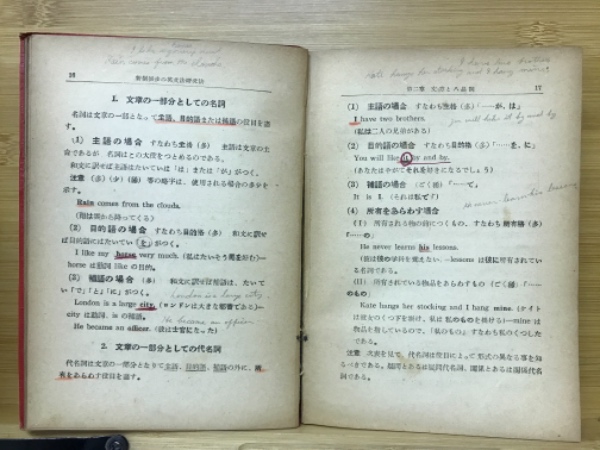 16
1. 文章の一部分としての名詞
名詞は文章の一部となつて主語、目的語または補語の役目を
(1) 主語の場合 すなわち主格(多) 主語は文章の主
和文に訳せば主語はたいていは「は」または「が」がつく。
注意 (多)(少)(稀) 等の略字は、使用される場合の多少を
示す。
Rain comes from the clouds.
(雨は雲から降つてくる)
(2) 目的語の場合 すなわち目的格(多) 和文に訳せ
ば目的語にはたいてい「を」がつく。
I like my horse very much. (私はたいそう馬を好む)—
horse は動詞 like の目的。
(3) 補語の場合 (多) 和文に訳せば補語は、たいてい
「で」「と」「に」がつく。
London is a large city. (ロンドンは大きな都会である)—
city は動詞 is の補語。
He became an officer. (彼は士官になった)
2. 文章の一部分としての代名詞
代名詞は文章の一部分となりて主語、目的語、補語の外に、所
有をあらわす役目を話す。
I have two brothers
Kate hangs her stocking and I hang mine.
第二章 文の要素と八品詞
17
(1) 主語の場合 すなわち主格(多)「……が、は」
I have two brothers.
(私は二人の兄弟がある)
you will like it by and by
(2) 目的語の場合 すなわち目的格(多)「……を、に」
You will like it by and by.
(あなたはやがてそれを好きになるでしょう)
(3) 補語の場合 (ごく稀)「……で」
It is I. (それは私です)
(4) 所有をあらわす場合
(I) 所有される物の前につくもの、すなわち所有格(多)
「……の」
He never learns his lessons.
(彼は彼の学課を覚えない。—lessons は彼に所有されてい
る名詞である。
(II) 所有されている物品をあらわすもの (ごく稀)「……
のもの」
Kate hangs her stocking and I hang mine. (ケイト
は彼女のくつ下を掛け、私は私のものを掛ける)—mine は
物品を指しているので、「私のもの」すなわち私のくつした
である。
注意 次表を見て、代名詞は役目によって形式の異なる事を知
るべきである。疑問とあるは疑問代名詞、関係とあるは関係代名
詞である。
London is a large city.
He became an officer.